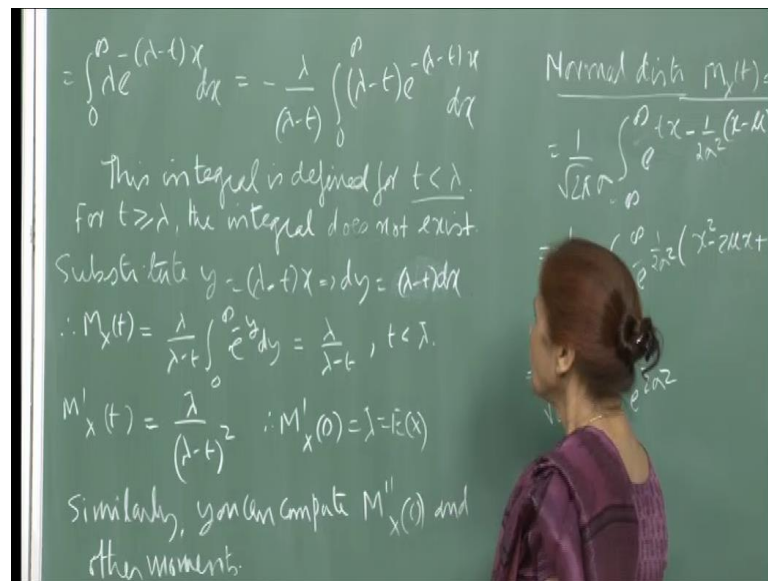 = ∫₀^∞ λe^{-(λ-t)x} dx = - λ/(λ-t) ∫₀^∞ (λ-t)e^{-(λ-t)x} dx
This integral is defined for t < λ.
For t ≥ λ, the integral does not exist.
Substitute y = (λ-t)x => dy = (λ-t)dx
∴ M_X(t) = λ/(λ-t) ∫₀^∞ e^{-y} dy = λ/(λ-t), t < λ.
M'_X(t) = λ/(λ-t)² ∴ M'_X(0) = λ = E(X)
Similarly, you can compute M''_X(0) and
other moments.
Normal distn M_X(t) =
= 1/(√2π σ) ∫_{-∞}^∞ e^{tx - 1/2σ² (x-μ)²
= ∫ ^∞ e^{-1/2σ² (x² - 2μx +
= √ e^{2σ²